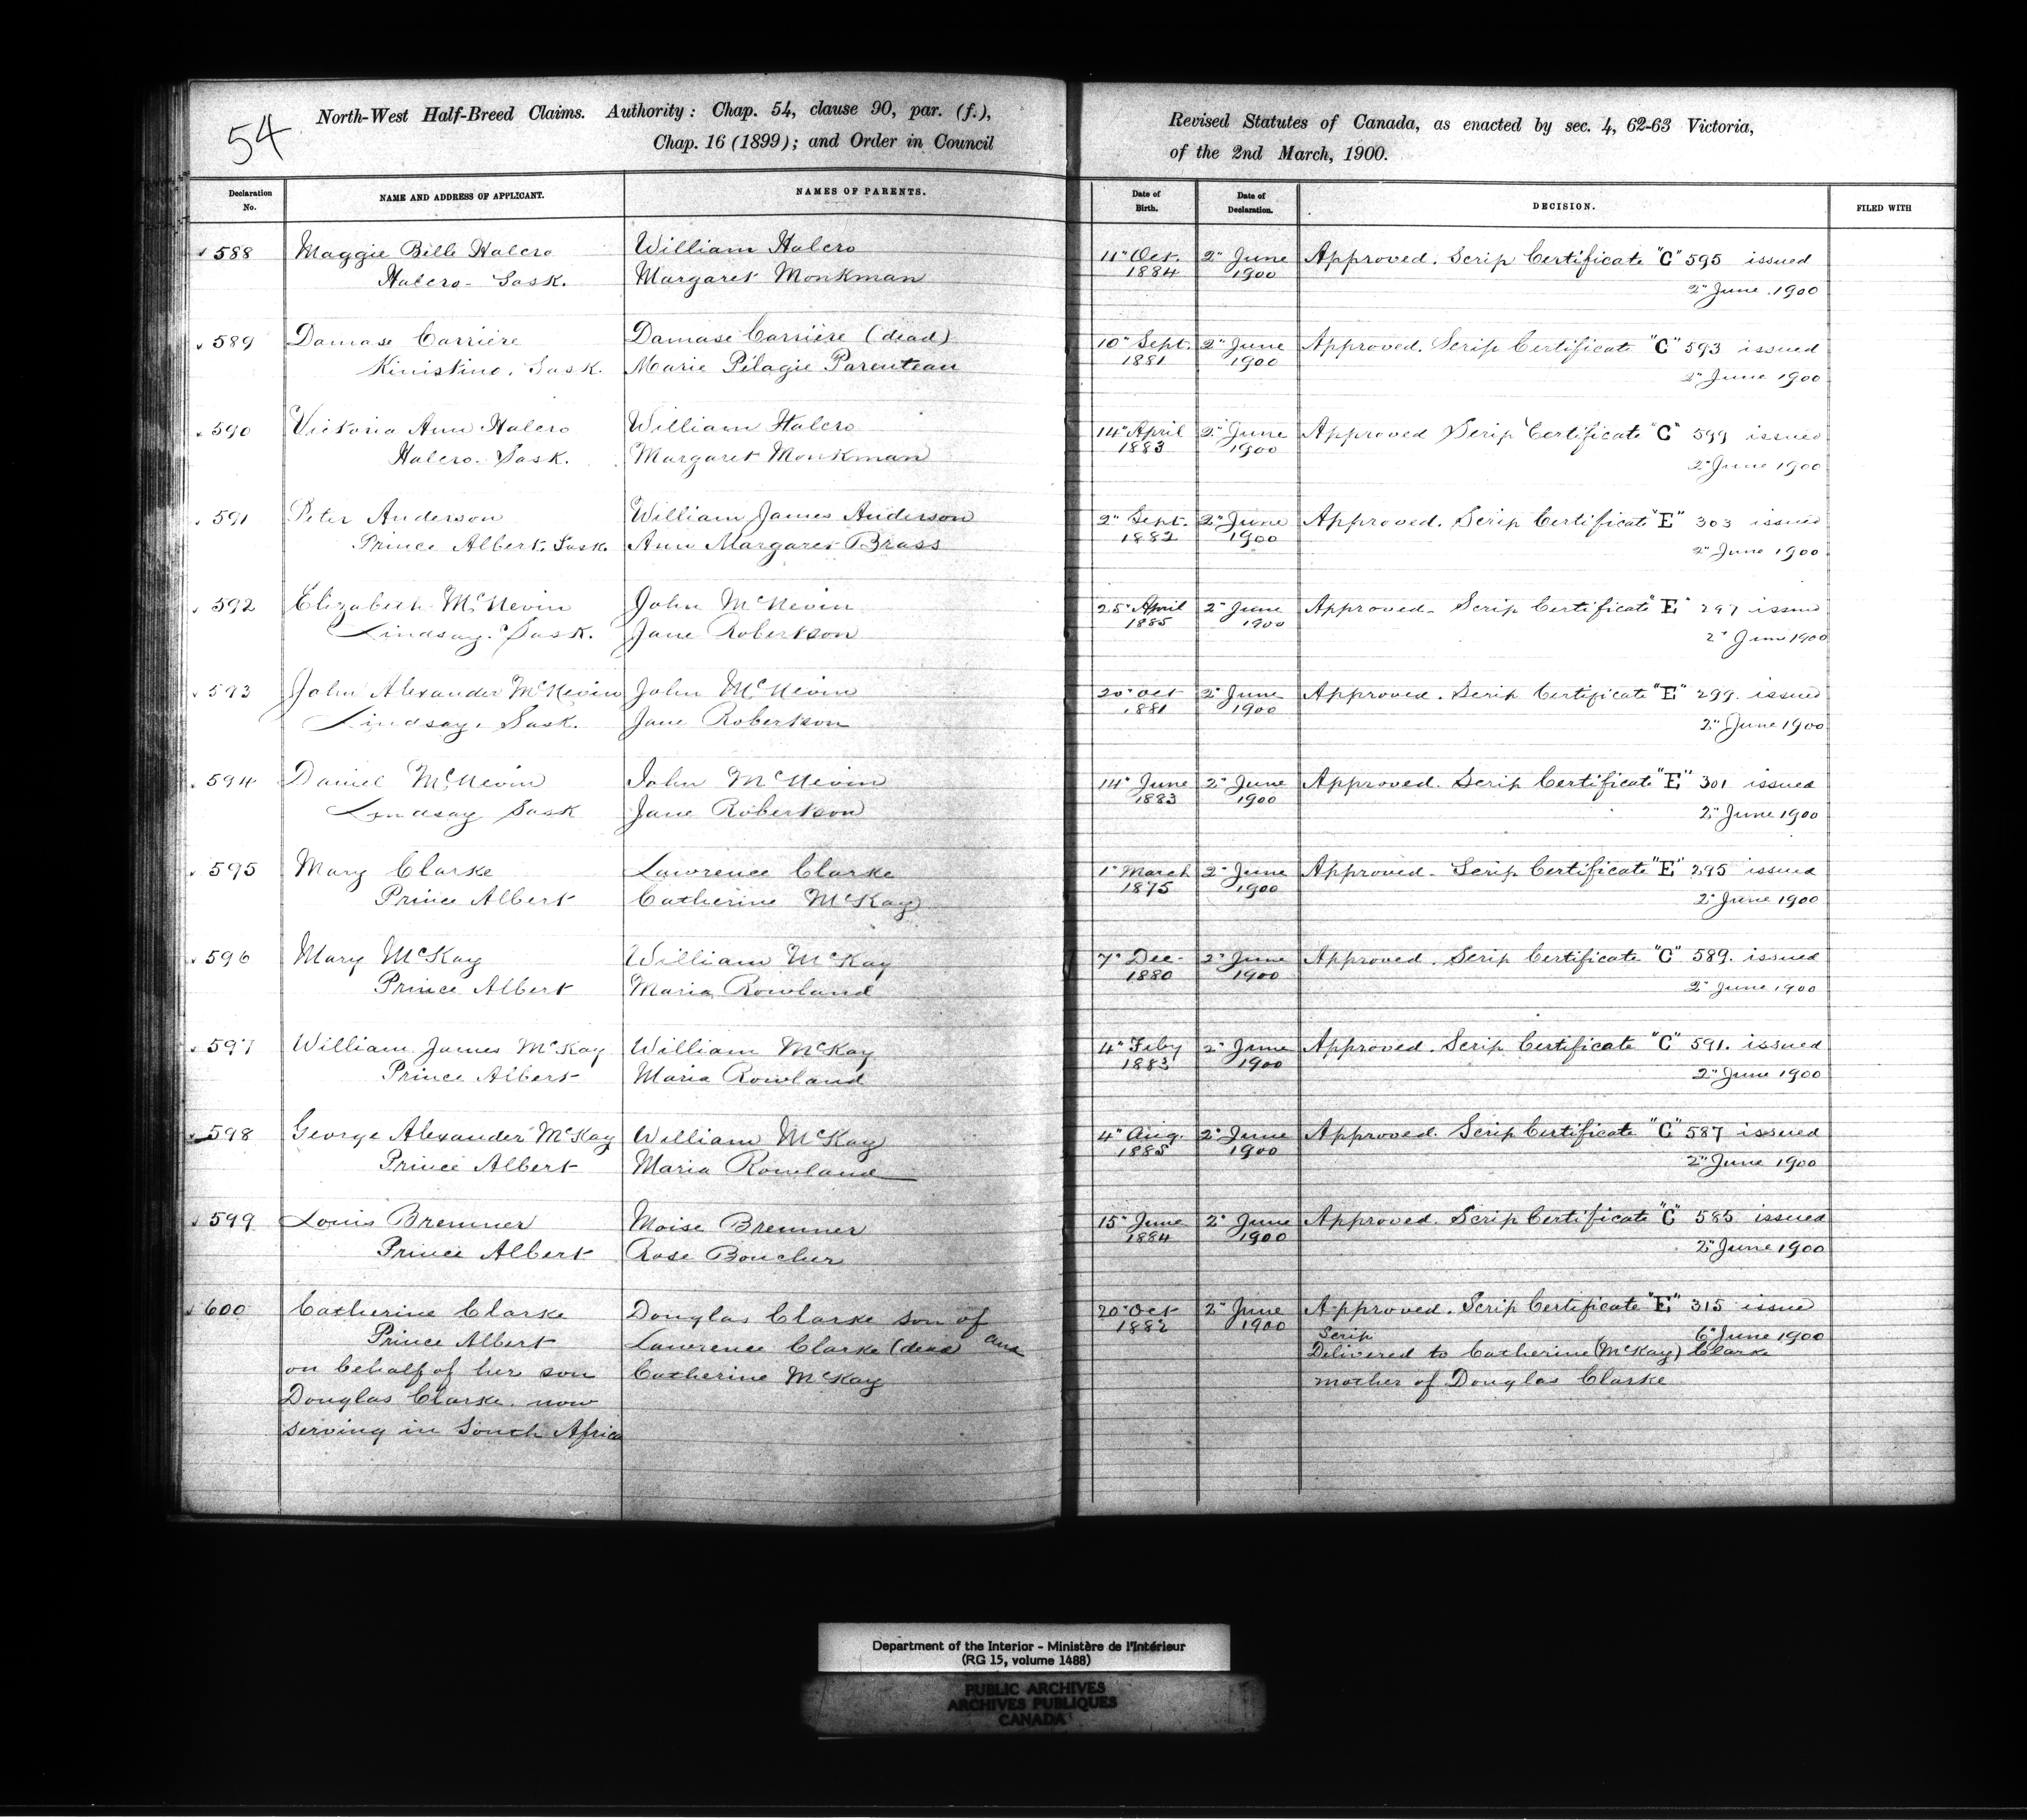 54
North-West Half-Breed Claims. Authority: Chap. 54, clause 90, par. (f.),
Chap. 16 (1899); and Order in Council
Revised Statutes of Canada, as enacted by sec. 4, 62-63 Victoria,
of the 2nd March, 1900.
Declaration No. NAME AND ADDRESS OF APPLICANT. NAMES OF PARENTS. Date of Birth. Date of Declaration. DECISION. FILED WITH
588 Maggie Belle Halcro William Halcro 11" Oct. 2" June Approved. Scrip Certificate "C" 595 issued
Halcro - Sask. Margaret Monkman 1884 1900 2" June 1900
589 Damase Carrière Damase Carrière (dead) 10" Sept. 2" June Approved. Scrip Certificate "C" 593 issued
Kinistino, Sask. Marie Pélagie Parenteau 1881 1900 2" June 1900
590 Victoria Ann Halcro William Halcro 14" April 2" June Approved Scrip Certificate "C" 599 issued
Halcro - Sask. Margaret Monkman 1883 1900 2" June 1900
591 Peter Anderson William James Anderson 2" Sept. 2" June Approved. Scrip Certificate "E" 303 issued
Prince Albert, Sask. Ann Margaret Brass 1882 1900 2" June 1900
592 Elizabeth McNevin John McNevin 25" April 2" June Approved - Scrip Certificate "E" 297 issued
Lindsay. Sask. Jane Robertson 1885 1900 2" June 1900
593 John Alexander McNevin John McNevin 20" Oct 2" June Approved. Scrip Certificate "E" 299. issued
Lindsay, Sask. Jane Robertson 1881 1900 2" June 1900
594 Daniel McNevin John McNevin 14" June 2" June Approved. Scrip Certificate "E" 301 issued
Lindsay Sask Jane Robertson 1883 1900 2" June 1900
595 Mary Clarke Lawrence Clarke 1" March 2" June Approved - Scrip Certificate "E" 295 issued
Prince Albert Catherine McKay 1875 1900 2" June 1900
596 Mary McKay William McKay 7" Dec- 2" June Approved. Scrip Certificate "C" 589. issued
Prince Albert Maria Rowland 1880 1900 2" June 1900
597 William James McKay William McKay 4" Feby 2" June Approved. Scrip Certificate "C" 591. issued
Prince Albert Maria Rowland 1883 1900 2" June 1900
598 George Alexander McKay William McKay 4" Aug. 2" June Approved. Scrip Certificate "C" 587 issued
Prince Albert Maria Rowland 1885 1900 2" June 1900
599 Louis Bremner Moise Bremner 15" June 2" June Approved. Scrip Certificate "C" 585 issued
Prince Albert Rose Boucher 1884 1900 2" June 1900
600 Catherine Clarke Douglas Clarke son of 20" Oct 2" June Approved. Scrip Certificate "E" 315 issue
Prince Albert Lawrence Clarke (dead) and 1882 1900 Scrip 6" June 1900
on behalf of her son Catherine McKay Delivered to Catherine (McKay) Clarke
Douglas Clarke. now mother of Douglas Clarke
serving in South Africa
Department of the Interior - Ministère de l'Intérieur
(RG 15, volume 1488)
PUBLIC ARCHIVES
ARCHIVES PUBLIQUES
CANADA